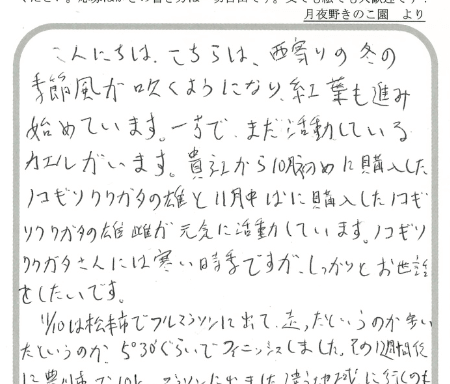 月夜野きのこ園 より
こんにちは、こちらは、西寄りの冬の
季節風が吹くようになり、紅葉も進み
始めています。一方で、まだ活動している
カエルがいます。貴社から10月初めに購入した
ノコギリクワガタの雄と11月中ばに購入したノコギ
リクワガタの雄雌が元気に活動しています。ノコギリ
クワガタさんには寒い時季ですが、しっかりとお世話
をしたいです。
11/10は松本市でフルマラソンに出て、走ったというのか歩い
たというのか、5°30'ぐらいでフィニッシュしました。その1週間後